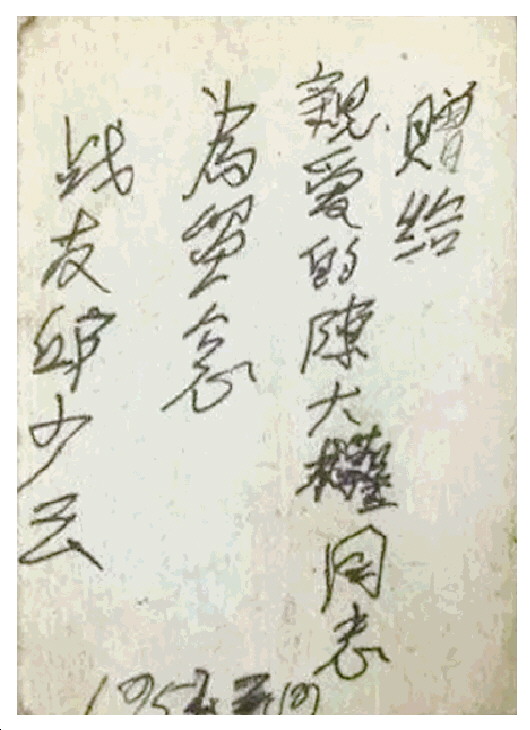 贈给
親爱的陳大權同志
為留念
战友邱少云
195